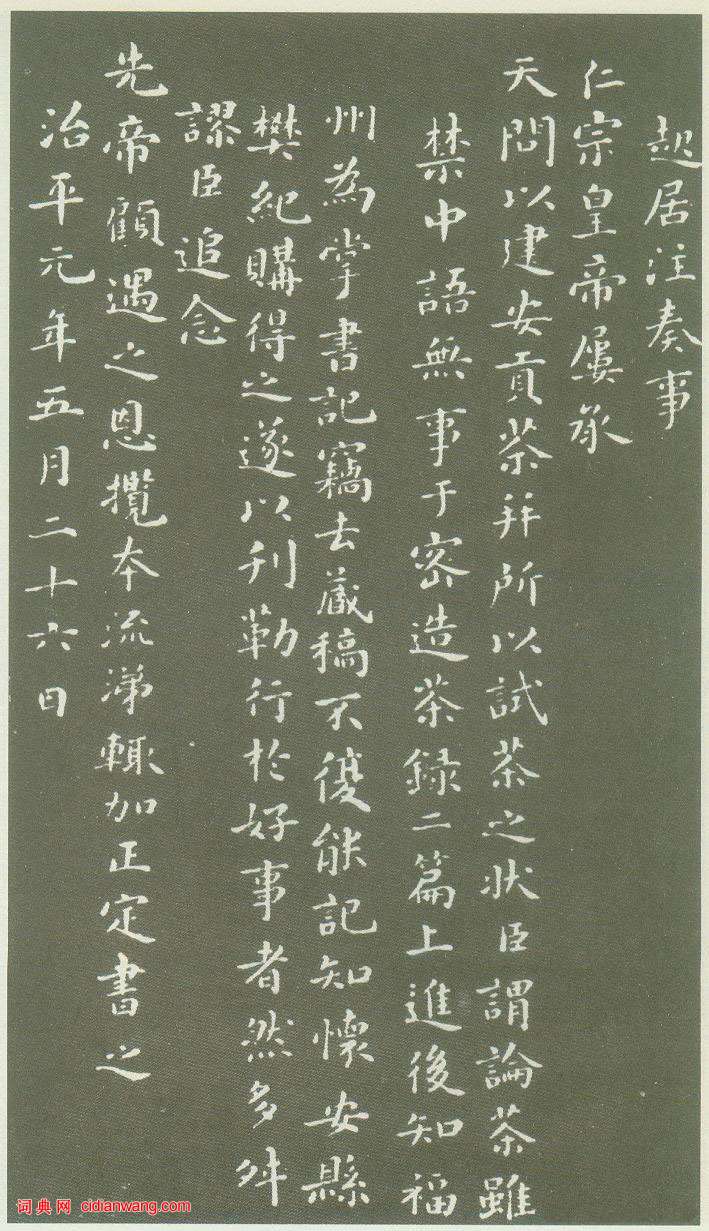 起居注奏事
仁宗皇帝屢承
天問以建安貢茶并所以試茶之狀臣謂論茶雖
禁中語無事于密造茶錄二篇上進後知福
州為掌書記竊去藏稿不復能記知懷安縣
樊紀購得之遂以刊勒行於好事者然多舛
謬臣追念
先帝顧遇之恩攬本流涕輒加正定書之
治平元年五月二十六日
词典网 cidianwang.com